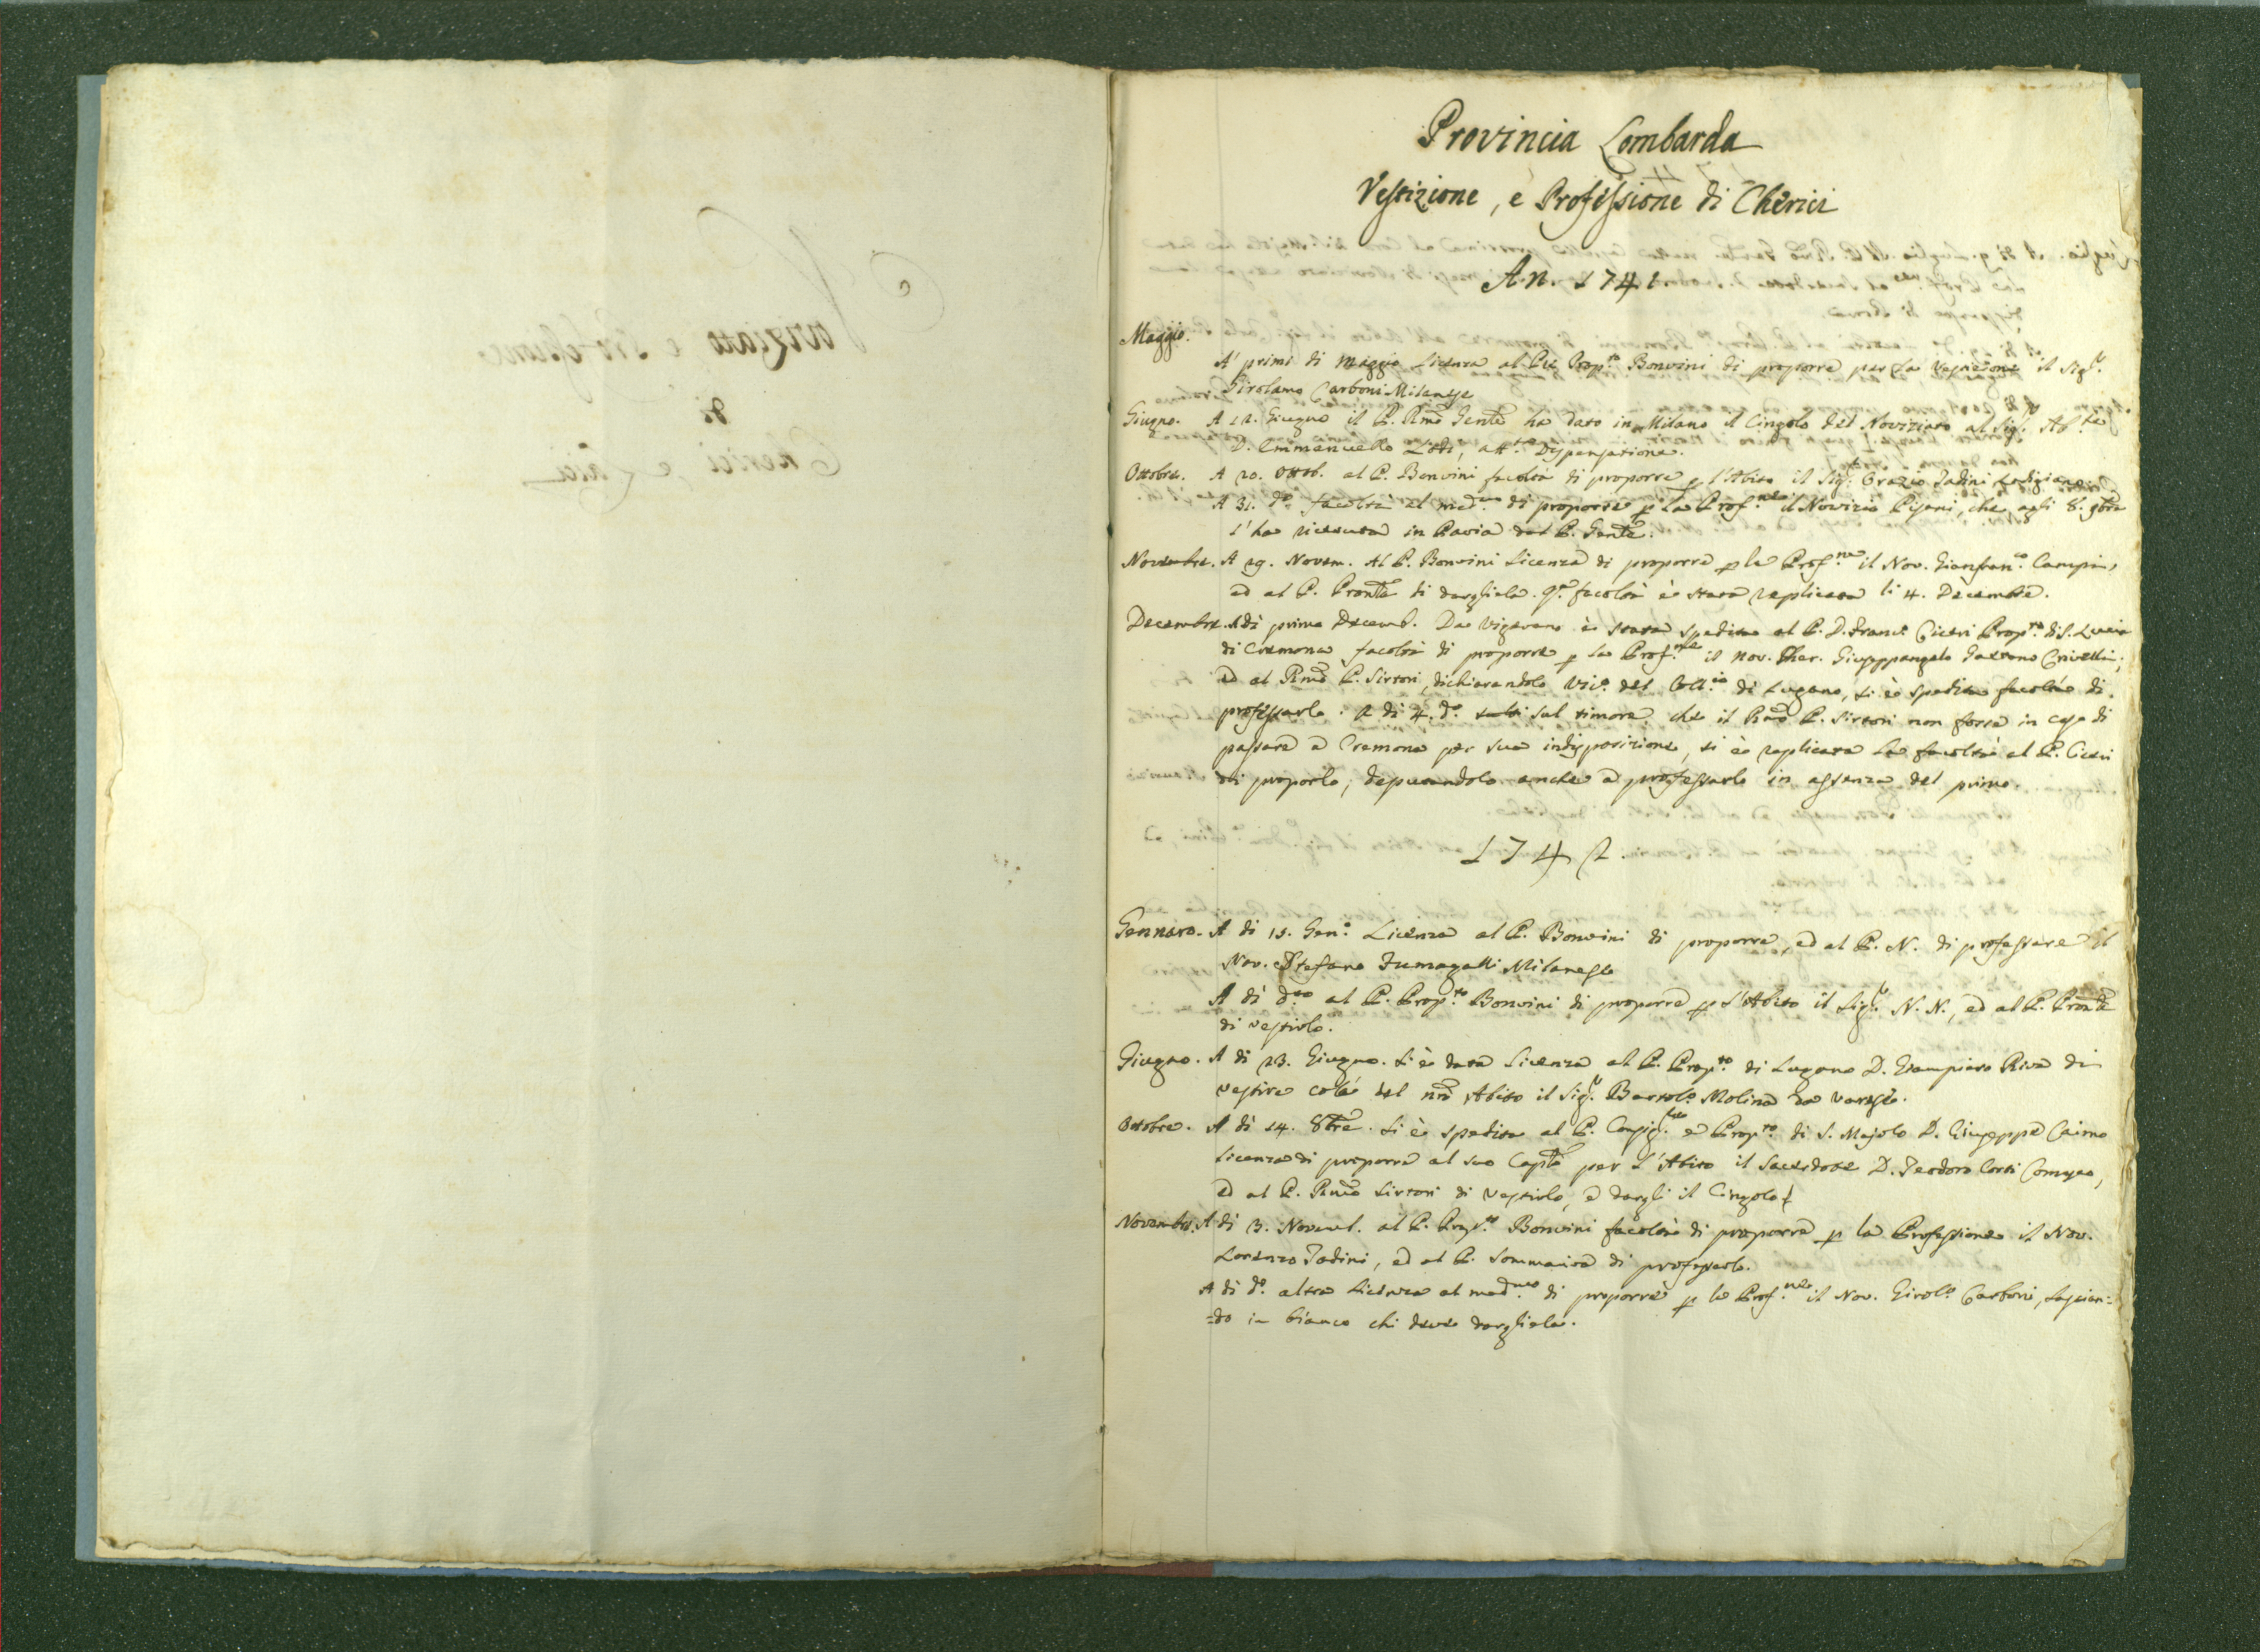 Provincia Lombarda
Vestizione, e Professione di Cherici
An. 1741.
Maggio.
A' primi di Maggio Licenza al Pre Prop.to Bonvini di proporre per la Vestizione il Sig.r
Girolamo Carboni Milanese
Giugno. A 12. Giugno il P. Rmo Gente ha dato in Milano il Cingolo del Noviziato al Sig.r Ab.te
D. Emmanuello Lodi, att.a Dispensazione.
Ottobre. A 20. Ottob. al P. Bonvini facoltà di proporre p l'Abito il Sig.r Orazio Tadini Lodigiano.
A 31. d.o facoltà al med.mo di proporre p la Prof.ne il Novizio Pisani, che agli 8. 9bre
l'ha ricevuta in Pavia dal P. Gente.
Novembre. A 29. Novem. Al P. Bonvini Licenza di proporre p la Prof.ne il Nov. Gianfran.co Campi,
ed al P. Pronle di dargliela. q.a facoltà è stata replicata li 4. Decembre.
Decembre. A di primo Decemb. Da Vigevano è stata spedita al P. D. Franc. Ciceri Prop.to di S. Lucia
di Cremona facoltà di proporre p la Prof.ne il nov. Cher. Giuseppangelo Gaetano Crivelli;
ed al Rmo P. Sirtori, dichiarandolo Vic.o del Coll.io di Lugano, si è spedita facoltà di
professarlo. A di 4. d.o sul timore che il Rmo P. Sirtori non fosse in caso di
passare a Cremona per sua indisposizione, si è replicata la facoltà al P. Ciceri
di proporlo, deputandolo anche a professarlo in assenza del primo.
1742.
Gennaro. A di 15. Gen.o Licenza al P. Bonvini di proporre, ed al P. N. di professare il
Nov. Stefano Fumagalli Milanese
A di d.to al P. Prop.to Bonvini di proporre p l'Abito il Sig.r N. N., ed al P. Pronle
di vestirlo.
Giugno. A di 23. Giugno. Si è data Licenza al P. Prop.to di Lugano D. Giampiero Riva di
vestire colà del nro Abito il Sig.r Bartol.o Molina da Varese.
Ottobre. A di 14. 8bre. Si è spedita al P. Consig.re e Prop.to di S. Majolo D. Giuseppe Caimo
Licenza di proporre al suo Caplo per l'Abito il Sacerdote D. Teodoro Corti Comasco,
ed al P. Rmo Sirtori di vestirlo, e dargli il Cingolo
Novembre. A di 3. Novemb. al P. Prop.to Bonvini facoltà di proporre p la Professione il Nov.
Lorenzo Tadini, ed al P. Sommariva di professarlo.
A di d.o altra Licenza al med.mo di proporre p la Prof.ne il Nov. Girol.o Carboni, lascian=
=do in bianco chi deve dargliela.